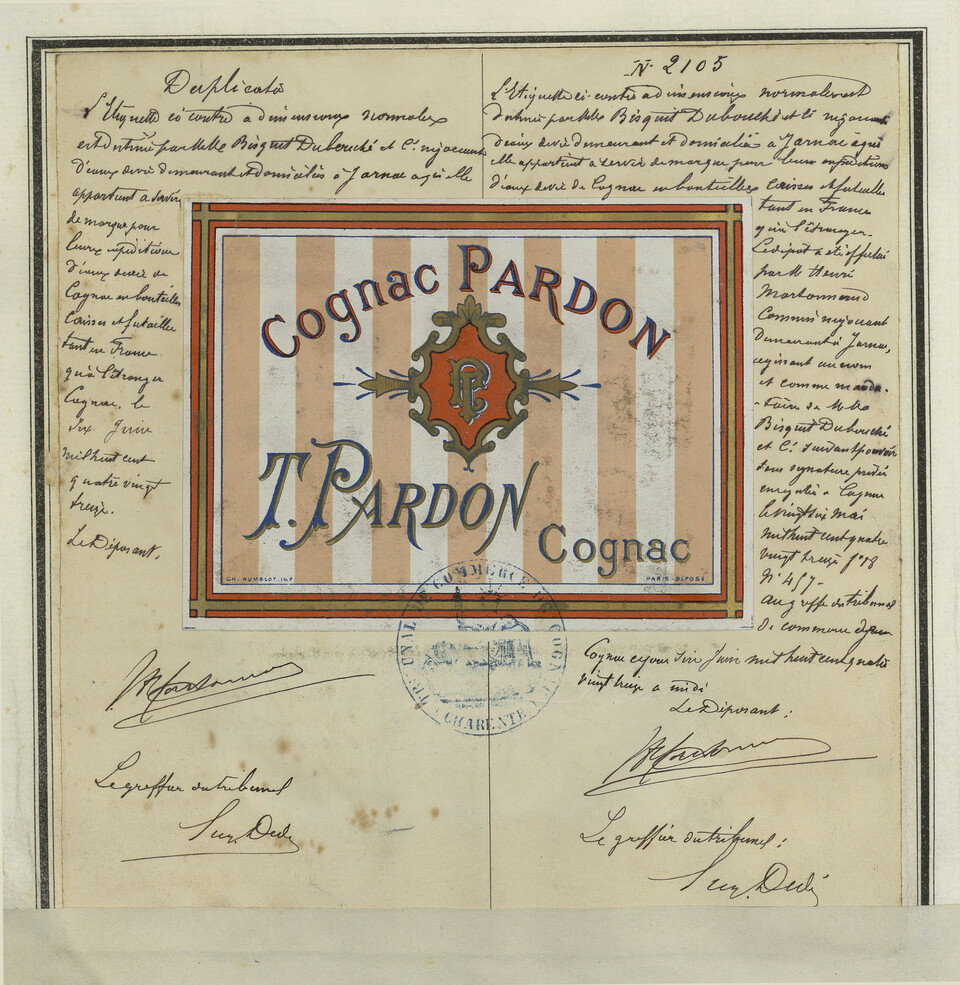 Duplicata
L'Etiquette ci contre a dimensions normales
est destinée par Mrs Bisquit Dubouché et Cie négociants
d'eaux de vie demeurant et domiciliés à Jarnac a qui elle
appartient a servir
de marque pour
leurs expéditions
d'eaux de vie de
Cognac en bouteilles
caisses et futailles
tant en France
qu'à l'étranger
Cognac, le
six Juin
mil huit cent
quatre vingt
treize.
Le Déposant,
Le greffier du tribunal
No 2105
L'Etiquette ci-contre a dimensions normales est
destinée par Mrs Bisquit Dubouché et Cie négociants
d'eaux de vie demeurant et domiciliés à Jarnac a qui
elle appartient a servir de marque pour leurs expéditions
d'eaux de vie de Cognac en bouteilles caisses et futailles
tant en France
qu'à l'étranger.
Le dépôt a été effectué
par M Henri
commis négociant
demeurant à Jarnac,
agissant au nom
et comme manda-
-taire de Mrs
Bisquit Dubouché
et Cie suivant pouvoir
sous signature privée
enregistré à Cognac
le vingt six mai
mil huit cent quatre
vingt treize fo 18
No 457-
au greffe du tribunal
de commerce de
Cognac ce jour six Juin mil huit cent quatre
vingt treize a midi
Le Déposant :
Le greffier du tribunal :
Cognac PARDON
T. PARDON
Cognac
CH. HUMBLOT, IMP
PARIS - DÉPOSÉ
TRIBUNAL DE COMMERCE DE COGNAC
(CHARENTE)